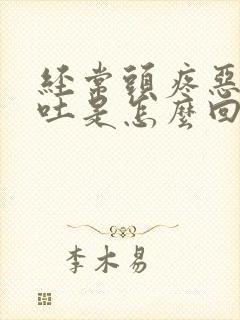 經常頭疼惡
吐是怎麼回
李木易